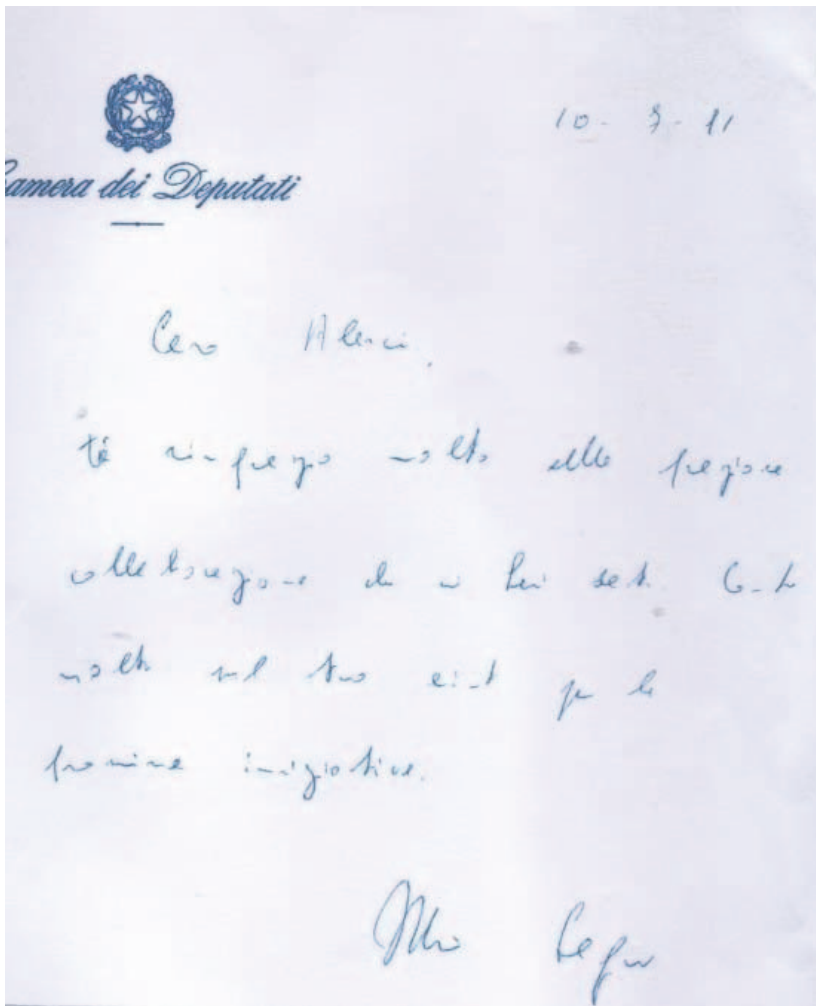 10-3-11
Camera dei Deputati
Caro
ti ringrazio molto della preziosa
collaborazione che mi hai dato. Conto
molto sul tuo aiuto per le
prossime iniziative.